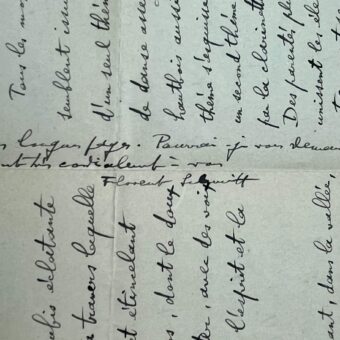 Tous les mo
semblent issu
d'un seul thèm
de danse asse
hautbois aussi
thème s'esquisse
un second thème
par la clarinett
Des parentés plu
unissent les élé
longues pages. Pourrai-je vous deman
cordialement à vous
Florent Schmitt
éclatante
à travers laquelle
et étincelant
s, dont le doux
er, avec des voix
l'esprit et la
ant, dans la vallée,